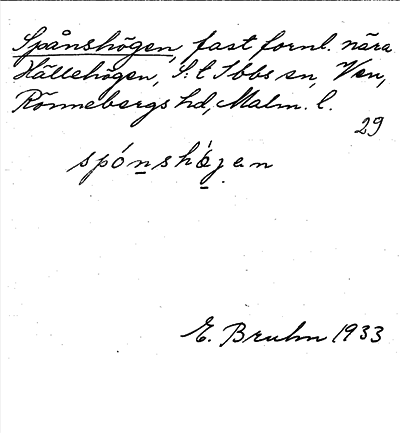 Spånshögen, fast fornl. nära
Hällehögen, S:t Ibbs sn, Ven,
Rönnebergs hd, Malm. l.
29
spónshö́gen
E. Bruhn 1933